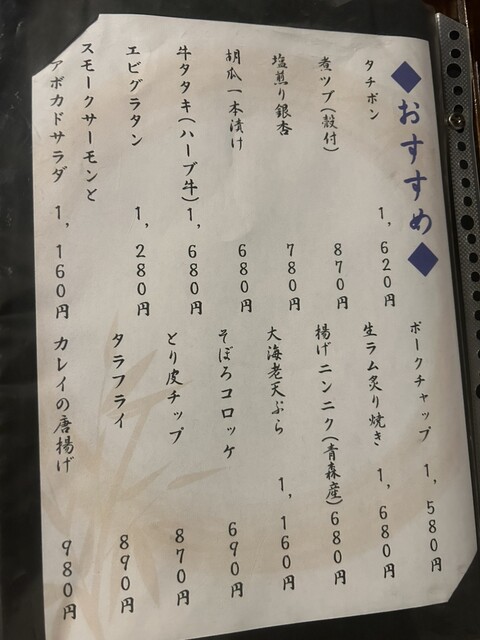 ◆おすすめ◆
タチポン 1,620円
煮ツブ(殻付) 870円
塩煎り銀杏 780円
胡瓜一本漬け 680円
牛タタキ(ハーブ牛) 1,680円
エビグラタン 1,280円
スモークサーモンと
アボカドサラダ 1,160円
ポークチャップ 1,580円
生ラム炙り焼き 1,680円
揚げニンニク(青森産) 680円
大海老天ぷら 1,160円
そぼろコロッケ 690円
とり皮チップ 870円
タラフライ 890円
カレイの唐揚げ 980円